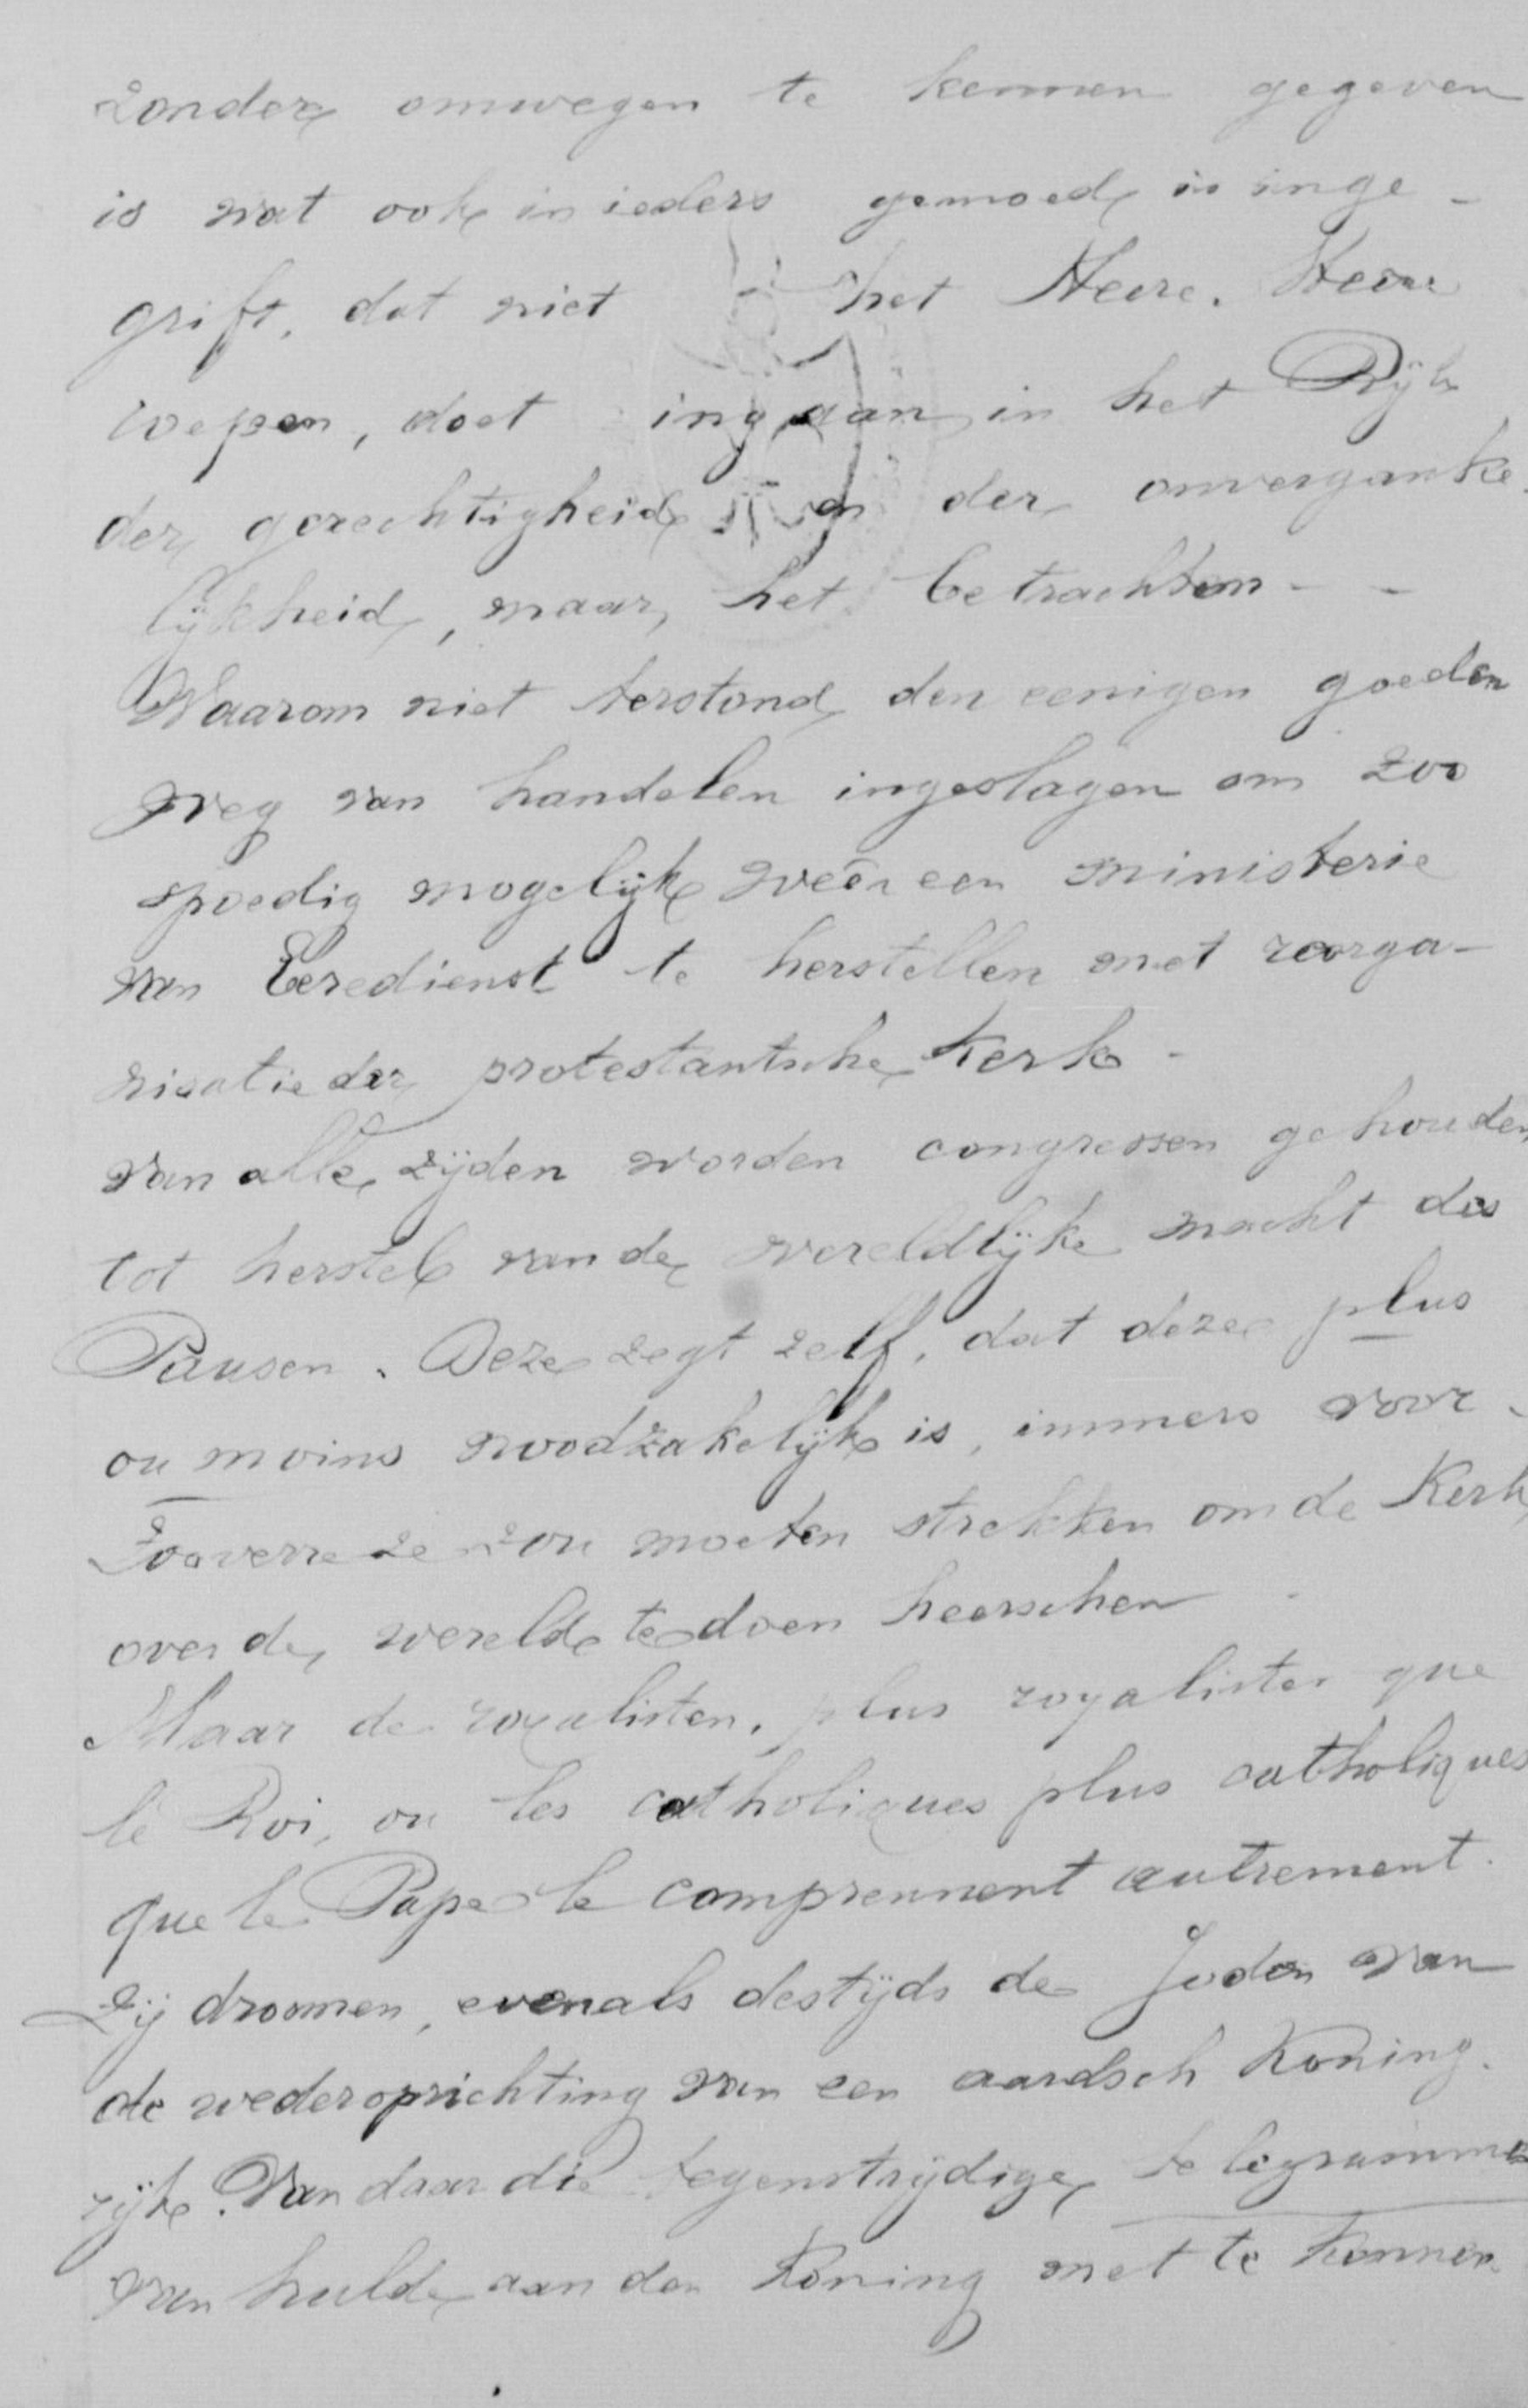 zonder omwegen te kennen gegeven
is wat ook in ieders gemoed is inge-
grift, dat niet het Heere. Heere
roepen, doet ingaan in het Rijk
der gerechtigheid en der onverganke-
lijkheid, maar, het betrachten - -
Waarom niet terstond den eenigen goeden
weg van handelen ingeslagen om zoo
spoedig mogelijk weêr een ministerie
van Eeredienst te herstellen met reorga-
nisatie der protestantsche Kerk -
van alle zijden worden congressen gehouden
tot herstel van de wereldlijke macht des
Pausen. Deze zegt zelf, dat deze plus
ou moins noodzakelijk is, immers voor-
zooverre ze zou moeten strekken om de Kerk
over de wereld te doen heerschen -
Maar de royalisten, plus royalistes que
le Roi, ou les catholiques plus catholiques
que le Pape le comprennent autrement.
Zij droomen, evenals destijds de Joden van
de wederoprichting van een aardsch Koning-
rijk. Van daar die tegenstrijdige telegrammen
van hulde aan den Koning met te kennen